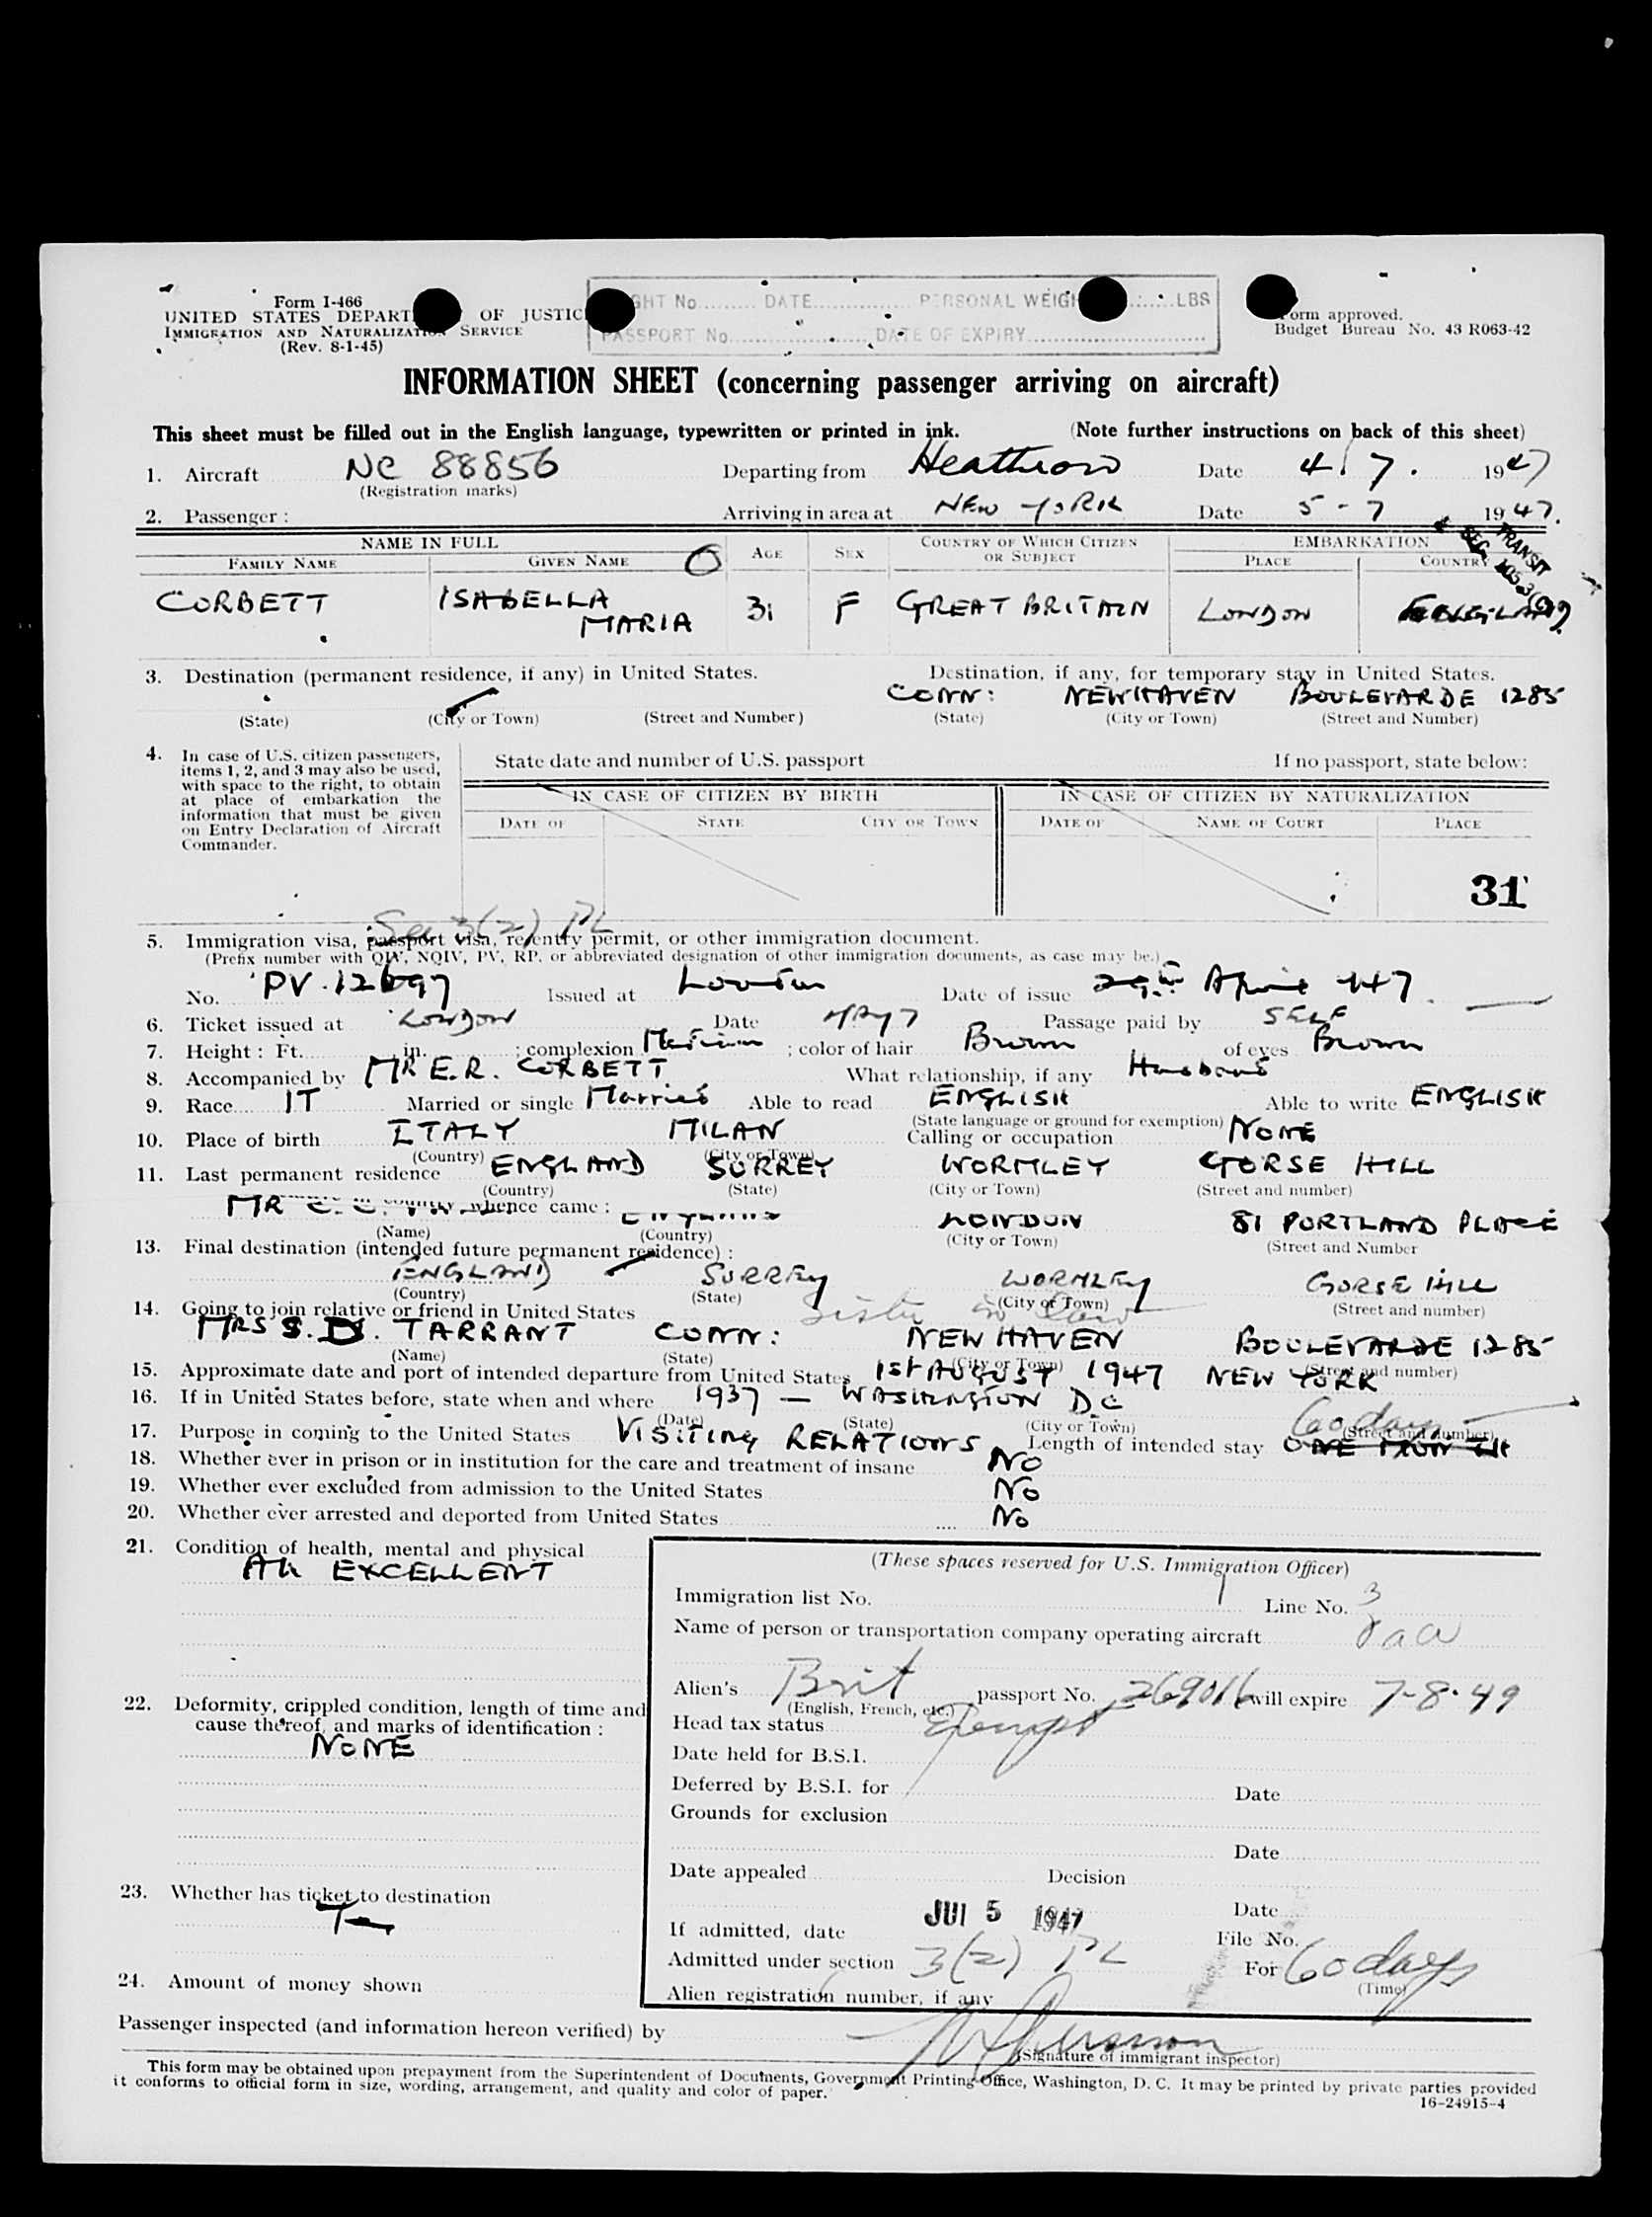 Form I-466
UNITED STATES DEPART OF JUSTIC
IMMIGRATION AND NATURALIZATION SERVICE
(Rev. 8-1-45)
GHT No. DATE PERSONAL WEIGH LBS
PASSPORT No. DATE OF EXPIRY
Form approved.
Budget Bureau No. 43 R063-42
INFORMATION SHEET (concerning passenger arriving on aircraft)
This sheet must be filled out in the English language, typewritten or printed in ink. (Note further instructions on back of this sheet)
1. Aircraft NC 88856 Departing from Heathrow Date 4. 7. 1947
(Registration marks)
2. Passenger : Arriving in area at NEW YORK Date 5 - 7 1947.
NAME IN FULL AGE SEX COUNTRY OF WHICH CITIZEN OR SUBJECT EMBARKATION
FAMILY NAME GIVEN NAME PLACE COUNTRY
TRANSIT
CORBETT ISABELLA MARIA 31 F GREAT BRITAIN LONDON ENGLAND
3. Destination (permanent residence, if any) in United States. Destination, if any, for temporary stay in United States.
CONN: NEWHAVEN BOULEVARDE 1285
(State) (City or Town) (Street and Number) (State) (City or Town) (Street and Number)
4. In case of U.S. citizen passengers, items 1, 2, and 3 may also be used, with space to the right, to obtain at place of embarkation the information that must be given on Entry Declaration of Aircraft Commander.
State date and number of U.S. passport If no passport, state below:
IN CASE OF CITIZEN BY BIRTH IN CASE OF CITIZEN BY NATURALIZATION
DATE OF STATE CITY OR TOWN DATE OF NAME OF COURT PLACE
31
Sec 3(2) PL
5. Immigration visa, passport visa, reentry permit, or other immigration document.
(Prefix number with QIV, NQIV, PV, RP, or abbreviated designation of other immigration documents, as case may be.)
No. PV. 12697 Issued at London Date of issue 29th April 47.
6. Ticket issued at LONDON Date MAY 7 Passage paid by SELF
7. Height : Ft. in. ; complexion Medium ; color of hair Brown of eyes Brown
8. Accompanied by MR E.R. CORBETT What relationship, if any Husband
9. Race IT Married or single Married Able to read ENGLISH Able to write ENGLISH
(State language or ground for exemption)
10. Place of birth ITALY MILAN Calling or occupation NONE
(Country) (City or Town)
11. Last permanent residence ENGLAND SURREY WORMLEY GORSE HILL
(Country) (State) (City or Town) (Street and number)
MR whence came : LONDON 81 PORTLAND PLACE
(Name) (Country) (City or Town) (Street and Number
13. Final destination (intended future permanent residence) :
ENGLAND SURREY WORMLEY GORSE HILL
(Country) (State) (City or Town) (Street and number)
14. Going to join relative or friend in United States Sister in law
MRS S. D. TARRANT CONN: NEW HAVEN BOULEVARDE 1285
(Name) (State) (City or Town) (Street and number)
15. Approximate date and port of intended departure from United States 1st AUGUST 1947 NEW YORK
16. If in United States before, state when and where 1937 — WASHINGTON D.C
(Date) (State) (City or Town) (Street and number)
60 days
17. Purpose in coming to the United States VISITING RELATIONS Length of intended stay ONE MONTH
18. Whether ever in prison or in institution for the care and treatment of insane NO
19. Whether ever excluded from admission to the United States NO
20. Whether ever arrested and deported from United States NO
21. Condition of health, mental and physical
EXCELLENT
22. Deformity, crippled condition, length of time and cause thereof, and marks of identification :
NONE
23. Whether has ticket to destination
Yes
24. Amount of money shown
(These spaces reserved for U.S. Immigration Officer)
Immigration list No. 1 Line No. 3
Name of person or transportation company operating aircraft Paa
Alien's Brit passport No. 269016 will expire 7-8-49
(English, French, etc.)
Head tax status Exempt
Date held for B.S.I.
Deferred by B.S.I. for Date
Grounds for exclusion
Date
Date appealed Decision
Date
If admitted, date JUL 5 1947
File No.
Admitted under section 3(2) PL For 60 days
(Time)
Alien registration number, if any
Passenger inspected (and information hereon verified) by
(Signature of immigrant inspector)
This form may be obtained upon prepayment from the Superintendent of Documents, Government Printing Office, Washington, D. C. It may be printed by private parties provided
it conforms to official form in size, wording, arrangement, and quality and color of paper.
16-24915-4